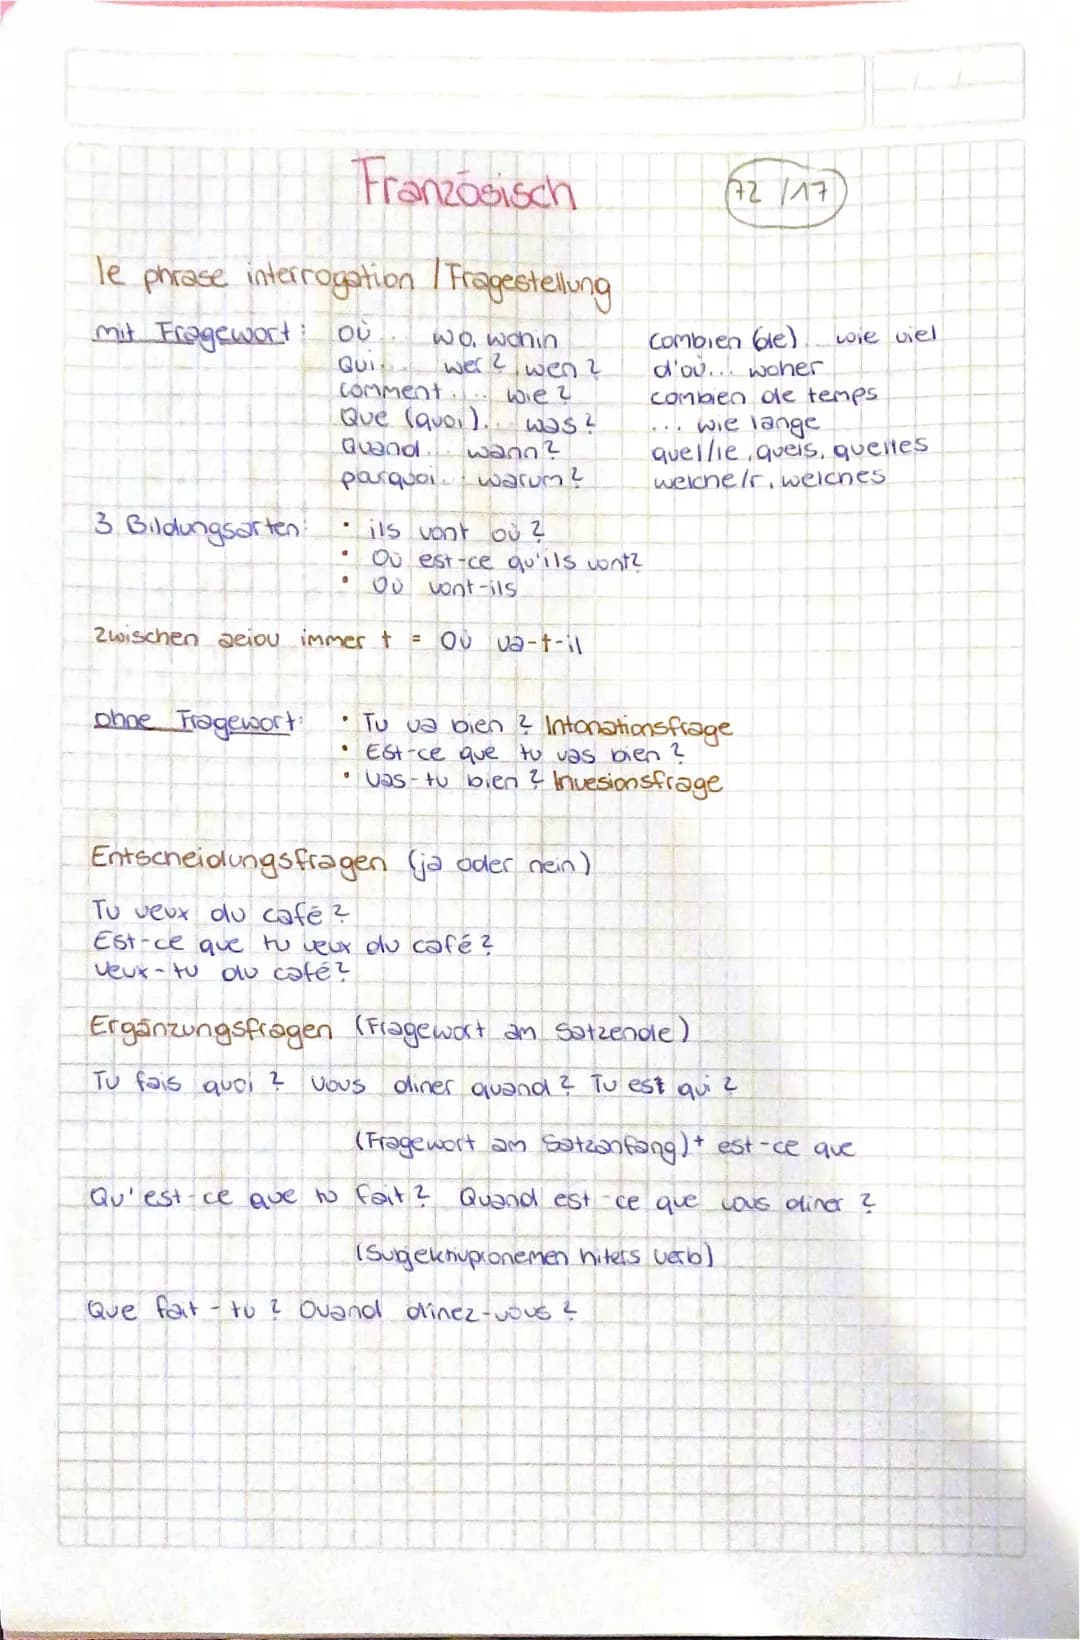 Französisch
72/17
le phrase interrogation / Fragestellung
mit Fragewort: où... wo, wohin combien (de)... wie viel
Qui... wer? wen? d'où... woher
comment.... wie? combien de temps
Que (quoi)... was? ... wie lange
Quand... wann? quel/le, quels, quelles
parquoi... warum? welche/r, welches
3 Bildungsarten: • ils vont où?
• Où est-ce qu'ils vont?
• Où vont-ils
zwischen aeiou immer t = Où va-t-il
ohne Fragewort: • Tu va bien? Intonationsfrage
• Est-ce que tu vas bien?
• Vas-tu bien? Invesionsfrage
Entscheidungsfragen (ja oder nein)
Tu veux du café?
Est-ce que tu veux du café?
Veux-tu du café?
Ergänzungsfragen (Fragewort am Satzende)
Tu fais quoi? Vous diner quand? Tu est qui?
(Fragewort am Satzanfang) + est-ce que
Qu'est-ce que tu fait? Quand est-ce que vous diner?
(Subjektivpronemen hiters Verb)
Que fait-tu? Quand dinez-vous?